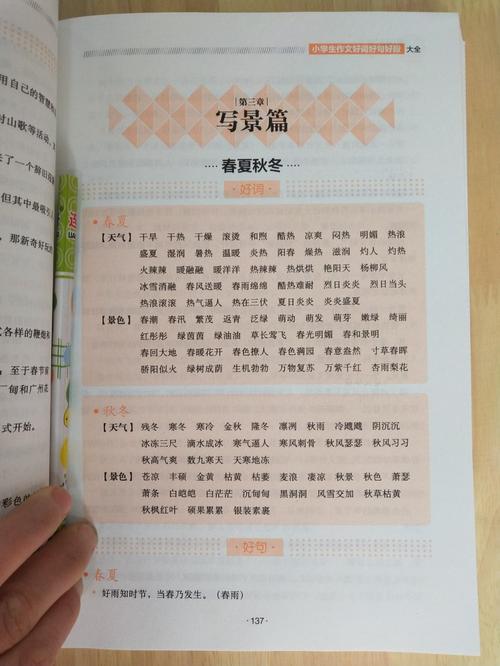 用自己的智慧
对山歌等活动，
来了一个辞旧
但其中最吸引
那新奇好玩
式各样的鞭炮
至于春节前
厂甸和广州花
式开始。
彩色的
小学生作文好词好句好段 大全
第三章
写景篇
春夏秋冬
好词
春夏
【天气】 干旱 干热 干燥 滚烫 和煦 酷热 凉爽 闷热 明媚 热浪
盛夏 湿润 暑热 温暖 炎热 阳春 燥热 滋润 灼人 灼热
火辣辣 暖融融 暖洋洋 热辣辣 热烘烘 艳阳天 杨柳风
冰雪消融 春风送暖 春雨绵绵 酷热难耐 烈日炎炎 烈日当头
热浪滚滚 热气逼人 热在三伏 夏日炎炎 炎炎盛夏
【景色】 春潮 春汛 繁茂 返青 泛绿 萌动 萌发 萌芽 嫩绿 绮丽
红彤彤 绿茵茵 绿油油 草长莺飞 春光明媚 春和景明
春回大地 春暖花开 春色撩人 春色满园 春意盎然 寸草春晖
骄阳似火 绿树成荫 生机勃勃 万物复苏 万紫千红 杏雨梨花
秋冬
【天气】 残冬 寒冬 寒冷 金秋 隆冬 凛冽 秋雨 冷飕飕 阴沉沉
冰冻三尺 滴水成冰 寒气逼人 寒风刺骨 秋风瑟瑟 秋风习习
秋高气爽 数九寒天 天寒地冻
【景色】 苍凉 丰硕 金黄 枯黄 枯萎 麦浪 凄凉 秋景 秋色 萧瑟
萧条 白皑皑 白茫茫 沉甸甸 黑洞洞 风雪交加 秋草枯黄
秋枫红叶 硕果累累 银装素裹
好句
春夏
好雨知时节，当春乃发生。（春雨）
137